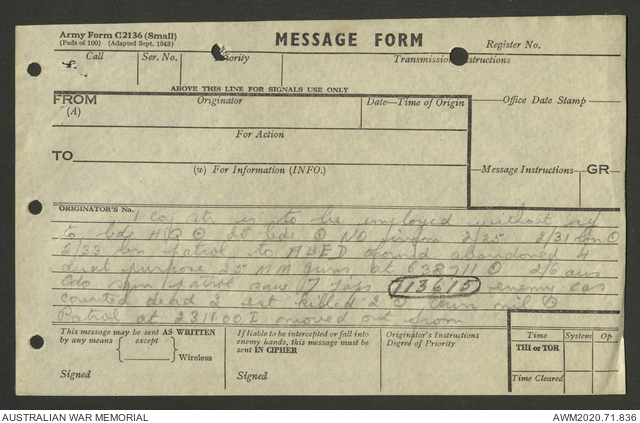 Army Form C2136 (Small)
(Pads of 100) (Adapted Sept. 1943)
MESSAGE FORM
Register No.
Call
Ser. No.
Priority
Transmission Instructions
ABOVE THIS LINE FOR SIGNALS USE ONLY
FROM
(A)
Originator
Date—Time of Origin
Office Date Stamp
For Action
TO
(w) For Information (INFO.)
Message Instructions
GR
ORIGINATOR'S No.
1 coy str is to be employed without ref
to bde HQ O 25 bde O NO 2/25 2/31 bn O
2/33 bn patrol to ABED found abandoned 4
dual purpose 25 MM guns at 638711 O 2/6 aus
Cdo sqn patrol 17 Japs 113615 enemy cas
counted dead 2 est killed 2 O own nil O
Patrol at 231100 I moved out
This message may be sent AS WRITTEN
by any means
except
Wireless
Signed
If liable to be intercepted or fall into
enemy hands, this message must be
sent IN CIPHER
Signed
Originator's Instructions
Degree of Priority
Time
System
Op
THI or TOR
Time Cleared
AUSTRALIAN WAR MEMORIAL
AWM2020.71.836